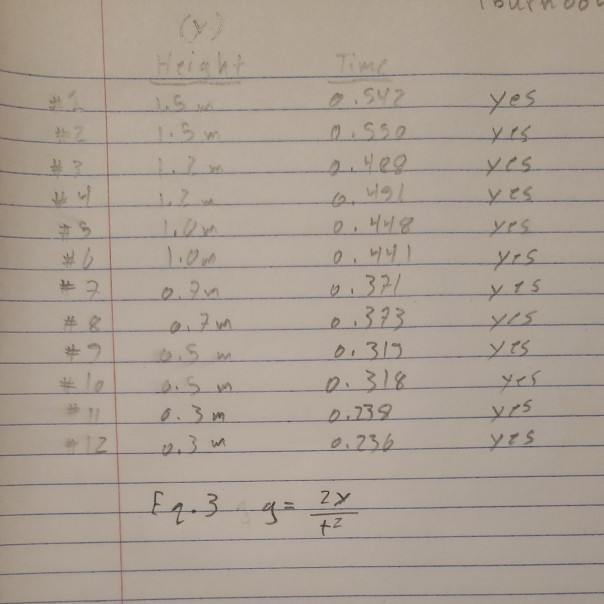 (y)
Height Time
#1 1.5 m 0.542 yes
#2 1.5 m 0.550 yes
#3 1.2 m 0.488 yes
#4 1.2 m 0.491 yes
#5 1.0m 0.448 yes
#6 1.0m 0.441 yes
#7 0.7m 0.371 yes
#8 0.7m 0.373 yes
#9 0.5 m 0.319 yes
#10 0.5 m 0.318 yes
#11 0.3 m 0.238 yes
#12 0.3 m 0.236 yes
Eq.3 g = 2y / t²